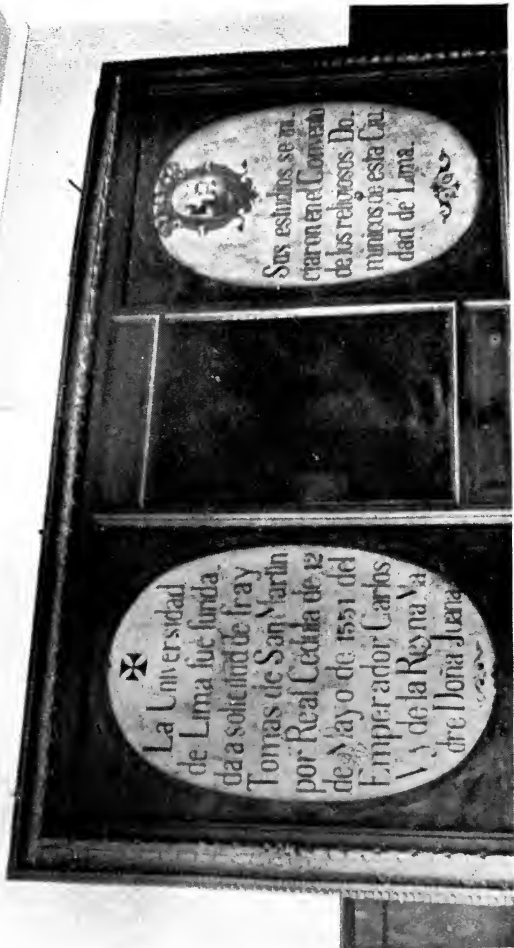 La Universidad
de Lima fue funda
da a solicitud de fray
Tomas de San Martin
por Real Cedula de 12
de Mayo de 1551 del
Emperador Carlos
V, y de la Reyna Ma
dre Doña Juana
Sus estudios se ini.
ciaron en el Convento
de los religiosos Do.
minicos de esta Ciu
dad de Lima.